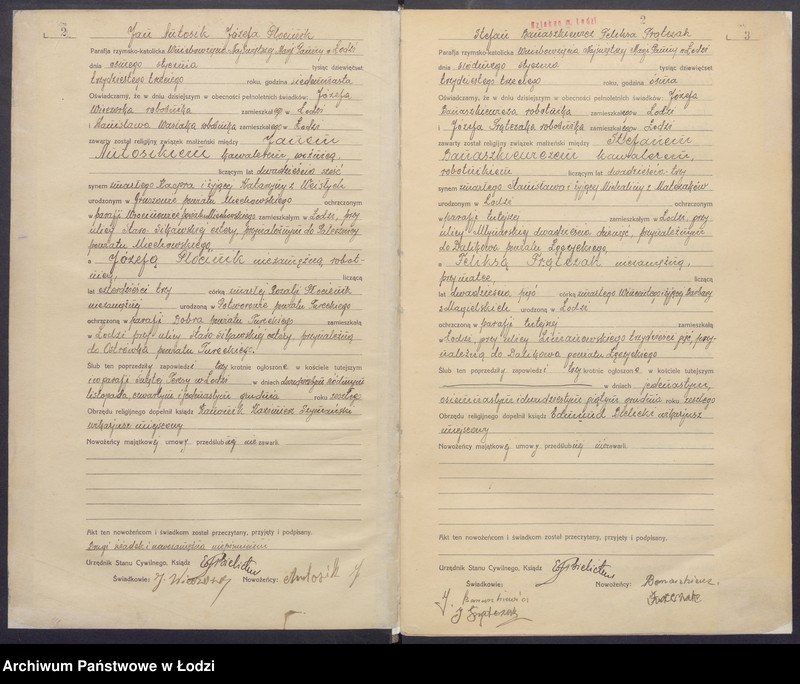 2
Jan Antosik Józefa Płóciennik
Parafja rzymsko-katolicka Wniebowzięcia Najświętszej Marji Panny w Łodzi
dnia ósmego stycznia tysiąc dziewięćset
trzydziestego trzeciego roku, godzina siedemnasta
Oświadczamy, że w dniu dzisiejszym w obecności pełnoletnich świadków: Józefa
Wieczorka robotnika zamieszkałego w Łodzi
i Stanisława robotnika zamieszkałego w Łodzi
zawarty został religijny związek małżeński między Janem
Antosikiem kawalerem, woźnicą,
liczącym lat dwadzieścia sześć
synem zmarłego Kacpra i żyjącej Katarzyny z
urodzonego w powiatu Miechowskiego ochrzczonym
w parafji powiatu Miechowskiego zamieszkałym w Łodzi, przy
ulicy cztery, przynależnym do
powiatu Miechowskiego,
a Józefą Płóciennik niezamężną robot-
nicą, liczącą
lat czterdzieści trzy córką zmarłej Rozalji Płóciennik
niezamężnej urodzoną w powiatu Tureckiego
ochrzczoną w parafji Dobra powiatu Tureckiego zamieszkałą
w Łodzi przy ulicy cztery, przynależną
do Ostrówka powiatu Tureckiego.
Ślub ten poprzedziły zapowiedzi trzy krotnie ogłoszone w kościele tutejszym
i w parafji świętej Teresy w Łodzi w dniach dwudziestym siódmym
listopada, czwartym i jedenastym grudnia roku zeszłego
Obrzędu religijnego dopełnił ksiądz Kanonik Kazimierz Szymański
wikarjusz miejscowy
Nowożeńcy majątkowej umowy przedślubnej nie zawarli.
Akt ten nowożeńcom i świadkom został przeczytany, przyjęty i podpisany.
Drugi świadek i nowozaślubiona niepiśmienni
Urzędnik Stanu Cywilnego, Ksiądz
Świadkowie: J. Wieczorek Nowożeńcy: Antosik J
2
3
Stefan Banaszkiewicz Feliksa Frątczak
Parafja rzymsko-katolicka Wniebowzięcia Najświętszej Marji Panny w Łodzi
dnia siódmego stycznia tysiąc dziewięćset
trzydziestego trzeciego roku, godzina ósma
Oświadczamy, że w dniu dzisiejszym w obecności pełnoletnich świadków: Józefa
Banaszkiewicza robotnika zamieszkałego w Łodzi
i Józefa Frątczaka robotnika zamieszkałego w Łodzi
zawarty został religijny związek małżeński między Stefanem
Banaszkiewiczem kawalerem,
robotnikiem liczącym lat dwadzieścia trzy
synem zmarłego Stanisława i żyjącej Michaliny z
urodzonym w Łodzi ochrzczonym
w parafji tutejszej zamieszkałym w Łodzi, przy
ulicy Młynarskiej dwadzieścia dziewięć, przynależnym
do Dalikowa powiatu Łęczyckiego,
a Feliksą Frątczak niezamężną,
przy matce, liczącą
lat dwadzieścia pięć córką zmarłego Wincentego i żyjącej Barbary
urodzoną w Łodzi
ochrzczoną w parafji tutejszej zamieszkałą
w Łodzi, przy ulicy Limanowskiego trzydzieści pięć, przy-
należną do Dalikowa powiatu Łęczyckiego
Ślub ten poprzedziły zapowiedzi trzy krotnie ogłoszone w kościele tutejszym
w dniach jedenastym,
osiemnastym i dwudziestym piątym grudnia roku zeszłego
Obrzędu religijnego dopełnił ksiądz Edmund wikarjusz
miejscowy
Nowożeńcy majątkowej umowy przedślubnej nie zawarli.
Akt ten nowożeńcom i świadkom został przeczytany, przyjęty i podpisany.
Urzędnik Stanu Cywilnego, Ksiądz
Świadkowie: Nowożeńcy: Banaszkiewicz
J. Banaszkiewicz
J Frątczak
Archiwum Państwowe w Łodzi